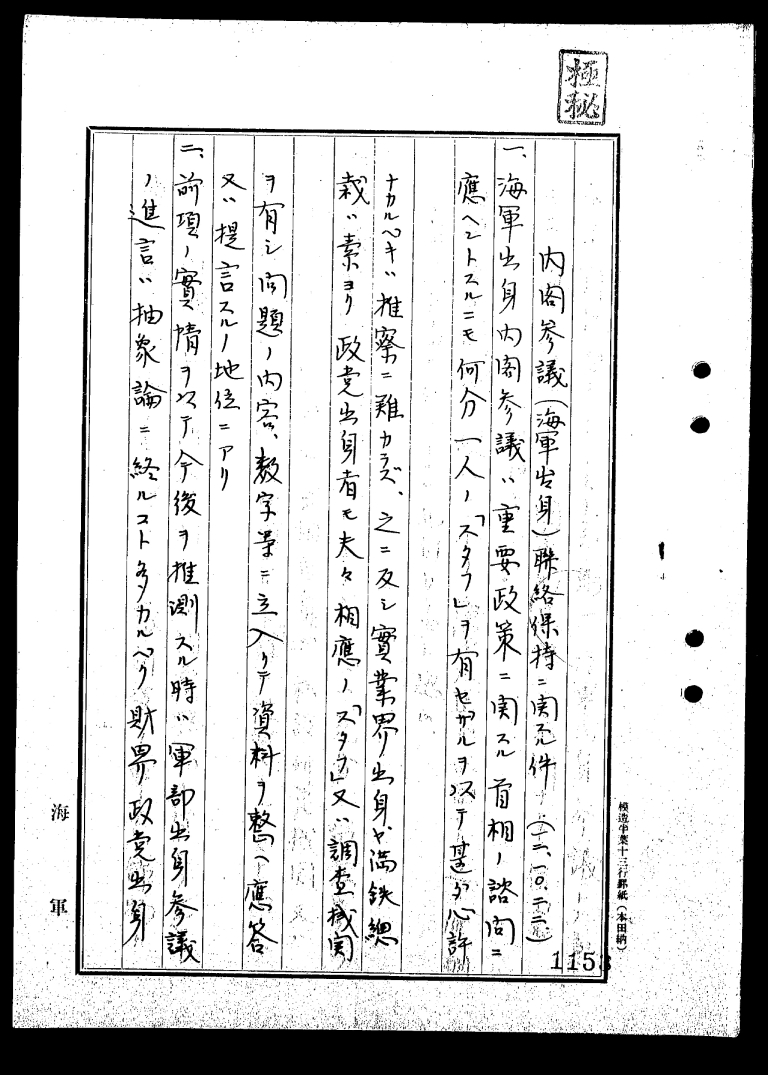 極秘
内閣参議(海軍出身)聯絡保持ニ関スル件 (一二、一〇、二二)
一、海軍出身内閣参議ハ重要政策ニ関スル首相ノ諮問ニ
應ヘントスルニモ何分一人ノ「スタフ」ヲ有セザルヲ以テ甚ダ心許
ナカルベキハ推察ニ難カラズ、之ニ反シ實業界出身や満鉄總
裁ハ素ヨリ政党出身者モ夫々相應ノ「スタフ」又ハ調査機関
ヲ有シ問題ノ内容、数字等ニ立入リテ資料ヲ整ヘ應答
又ハ提言スルノ地位ニアリ
二、前項ノ實情ヲ以テ今後ヲ推測スル時ハ軍部出身参議
ノ進言ハ抽象論ニ終ルコト多カルベク財界政党出身
海軍
模造半葉十三行罫紙(本田納)
1153